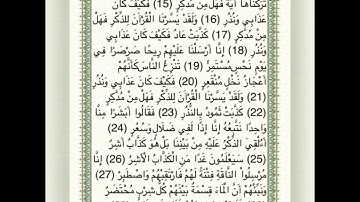 تَرَكْنَاهَا آيَةً فَهَلْ مِن مُّدَّكِرٍ (15) فَكَيْفَ كَانَ
عَذَابِي وَنُذُرِ (16) وَلَقَدْ يَسَّرْنَا الْقُرْآنَ لِلذِّكْرِ فَهَلْ
مِن مُّدَّكِرٍ (17) كَذَّبَتْ عَادٌ فَكَيْفَ كَانَ عَذَابِي
وَنُذُرِ (18) إِنَّا أَرْسَلْنَا عَلَيْهِمْ رِيحًا صَرْصَرًا فِي
يَوْمِ نَحْسٍ مُّسْتَمِرٍّ (19) تَنزِعُ النَّاسَ كَأَنَّهُمْ
أَعْجَازُ نَخْلٍ مُّنقَعِرٍ (20) فَكَيْفَ كَانَ عَذَابِي وَنُذُرِ
(21) وَلَقَدْ يَسَّرْنَا الْقُرْآنَ لِلذِّكْرِ فَهَلْ مِن مُّدَّكِرٍ
(22) كَذَّبَتْ ثَمُودُ بِالنُّذُرِ (23) فَقَالُوا أَبَشَرًا مِّنَّا
وَاحِدًا نَّتَّبِعُهُ إِنَّا إِذًا لَّفِي ضَلَالٍ وَسُعُرٍ (24)
أَؤُلْقِيَ الذِّكْرُ عَلَيْهِ مِن بَيْنِنَا بَلْ هُوَ كَذَّابٌ أَشِرٌ
(25) سَيَعْلَمُونَ غَدًا مَّنِ الْكَذَّابُ الْأَشِرُ (26) إِنَّا
مُرْسِلُو النَّاقَةِ فِتْنَةً لَّهُمْ فَارْتَقِبْهُمْ وَاصْطَبِرْ (27)
وَنَبِّئْهُمْ أَنَّ الْمَاءَ قِسْمَةٌ بَيْنَهُمْ كُلُّ شِرْبٍ مُّحْتَضَرٌ